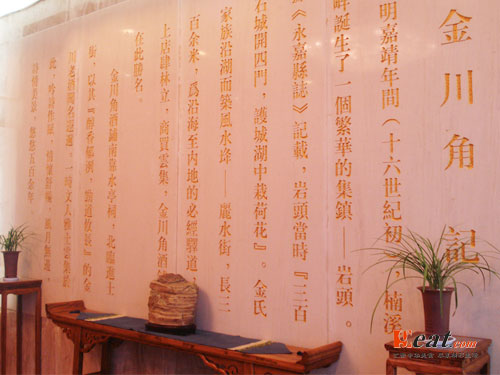 金川角記
明嘉靖年間（十六世紀初），楠溪
畔誕生了一個繁華的集鎮——岩頭。
《永嘉縣誌》記載，岩頭當時『三百
石城開四門，護城湖中栽荷花』。金氏
家族沿湖而築風水垾——麗水街，長三
百余米，爲沿海至内地的必經驛道
上店肆林立，商賈雲集，金川角酒
在此得名。
金川角酒鋪南靠水亭祠，北臨進士
街，以其
的金
川老酒聞名遐邇。一時文人雅士雲集於
此，吟詩作賦，
五百余年。
eat.com